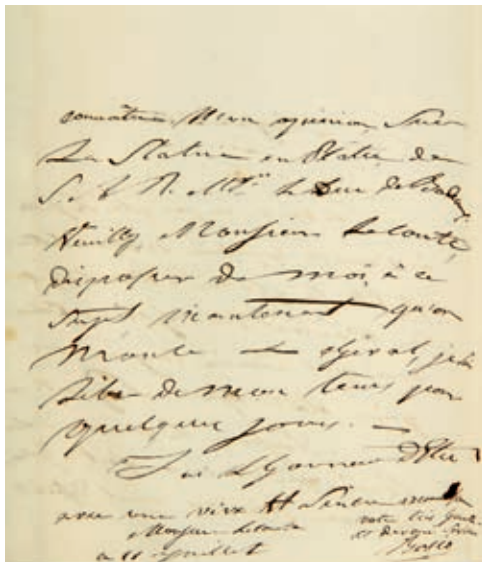 connaître Mon opinion, sur
la Statue en Platre de
S. A. R. le Duc de
Veuillez Monsieur Le Comte,
disposer de moi, à ce
sujet maintenant qu'on
monte le cheval, je suis
libre de mon tems pour
quelques jours. —
J'ai L'honneur d'Etre
avec une vive et Sincère
Monsieur Le Comte
votre très
et Devoué
a 11 Juillet